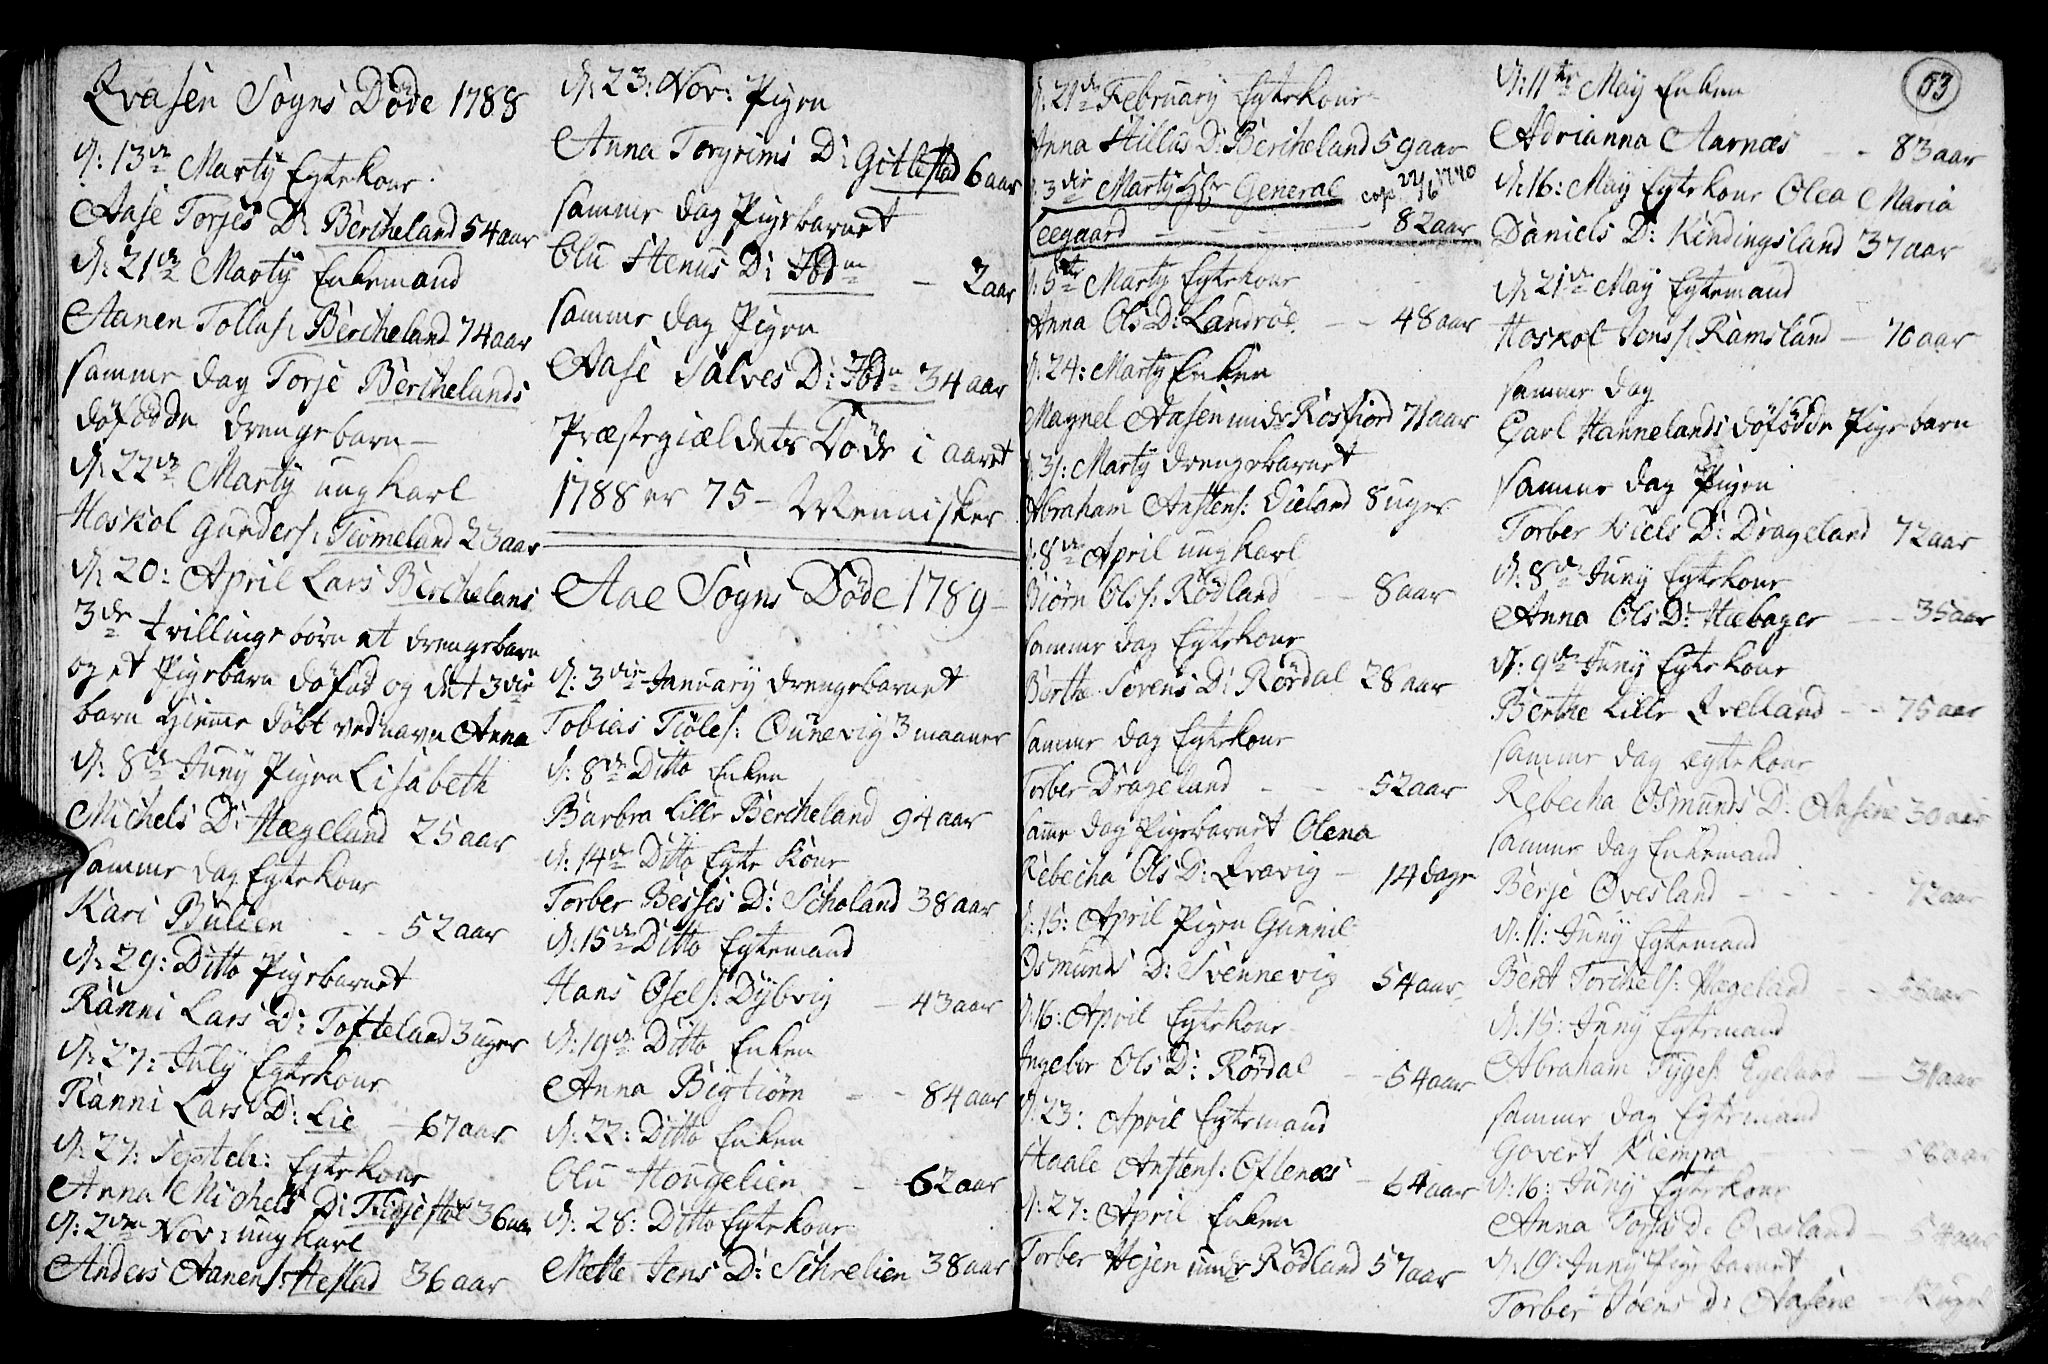 Qvasen Sogns Døde 1788
d: 13de Martÿ Egtekone
Aase Torjes D: Bercheland 54 aar
d: 21de Martÿ Enkemand
Aanen Tollus: Bercheland 74 aar
samme dag Torje Berchelands
døfødde drengebarn
d: 22de Martÿ ungkarl
Hoskol Gunders: Tiomeland 23 aar
d: 20: April Lars Berchelans
3de tvillingebørn et drengebarn
og et Pigebarn døfød og det 3die
barn hiemme døbt ved navn Anna
d: 8de Junÿ Pigen Lisabeth
Michels D: Hægeland 25 aar
samme dag Egtekone
Kari Bulien - - 52 aar
d: 29: Ditto Pigebarnet
Ranni Lars D: Tofteland 3 uger
d: 27: Julÿ Egtekone
Ranni Lars D: Lie - 67 aar
d: 27: Septeb: Egtekone
Anna Michels D: 36 aar
d: 2den Nov: ungkarl
Anders Aanens: Hestad 36 aar
d: 23: Nov: Pigen
Anna Torgrims D: Gitlestad 6 aar
samme dag Pigebarnet
Olu Stenus D: Ibdm - 2 aar
samme dag Pigen
Aase Salves D: Ibdm 34 aar
Præstegiældets Døde i aaret
1788 er 75 - Mennisker
Aae Sogns Døde 1789
d: 3die Januarÿ drengebarnet
Tobias Tiøles: Ounevig 3 maaner
d: 8de Ditto Enken
Barbra Lille Bercheland 94 aar
d: 14de Ditto Egte Kone
Torber Besses D: Scholand 38 aar
d: 15de Ditto Egtemand
Hans Osels: Dÿbvig - 43 aar
d: 19de Ditto Enken
Anna Bigtiørn - - 84 aar
d: 22: Ditto Enken
Olu Hougelien - 62 aar
d: 28: Ditto Egtekone
Mette Jens D: Schrelien 38 aar
d: 21de Februarÿ Egtekone
Anna Aillus D: Bercheland 59 aar
d: 3die Martÿ Hr General cop. 22/6 1740
Leegaard - - - 82 aar
d: 5te Martÿ Egtekone
Anna Ols D: Landrøe - - 48 aar
d: 24: Martÿ Enken
Magnel Aasen unde Rosfiord 71 aar
d: 31: Martÿ drengebarnet
Abraham Anstens: Vieland 8 uger
d: 8de April ungkarl
Biørn Ols: Rødland - - 8 aar
samme dag Egtekone
Berthe Sørens D: Rørdal 28 aar
samme dag Egtekone
Torber Drageland - - - 52 aar
samme dag Pigebarnet Olena
Rebecha Ols D: Qvavig - 14 dage
d: 15: April Pigen Gunnil
Osmunds D: Svennevig 54 aar
d: 16: April Egtekone
Ingebor Ols D: Rørdal - - 54 aar
d: 23: April Egtemand
Staale Anstens: Oftenæs - 64 aar
d: 27: April Enken
Torber Hejen unde Rødland 57 aar
63
d: 11te May Enken
Adrianna Aarnæs - - 83 aar
d: 16: May Egtekone Olea Maria
Daniels D: Kindingsland 37 aar
d: 21de May Egtemand
Hoskol Jens: Ramsland - 70 aar
samme dag
Carl Hannelands døfødde Pigebarn
samme dag Pigen
Torber Niels D: Drageland 72 aar
d: 8de Junÿ Egtekone
Anna Ols D: Hæbager - - 35 aar
d: 9de Junÿ Egtekone
Berthe Lille Qvelland - - 75 aar
samme dag egtekone
Rebecha Osmunds D: Aasene 30 aar
samme dag Enkemand
Berje Øvesland - - - - 72 aar
d: 11: Junÿ Egtemand
Bent Torchels: Hægeland - - aar
d: 15: Junÿ Egtemand
Abraham Tÿges: Egeland - 31 aar
samme dag Egtemand
Govert Kiempa - - 58 aar
d: 16: Junÿ Egtekone
Anna Torjus D: Øvesland - 54 aar
d: 19: Junÿ Pigebarnet
Torber Joens D: Aasene - uger